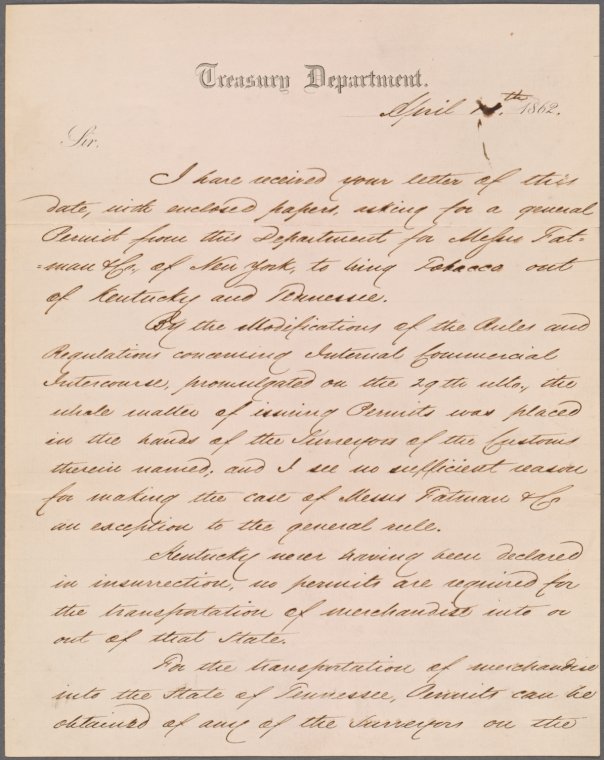 Treasury Department.
April th. 1862.
Sir,
I have received your letter of this
date, with enclosed papers, asking for a general
Permit from this Department for Messrs Fat=
=man & Co, of New York, to bring Tobacco out
of Kentucky and Tennessee.
By the Modifications of the Rules and
Regulations concerning Internal Commercial
Intercourse, promulgated on the 29th ulto., the
whole matter of issuing Permits was placed
in the hands of the Surveyors of the Customs
therein named; and I see no sufficient reason
for making the case of Messrs Fatman & Co
an exception to the general rule.
Kentucky never having been declared
in insurrection, no permits are required for
the transportation of merchandise into or
out of that State.
For the transportation of merchandise
into the State of Tennessee, Permits can be
obtained of any of the Surveyors on the